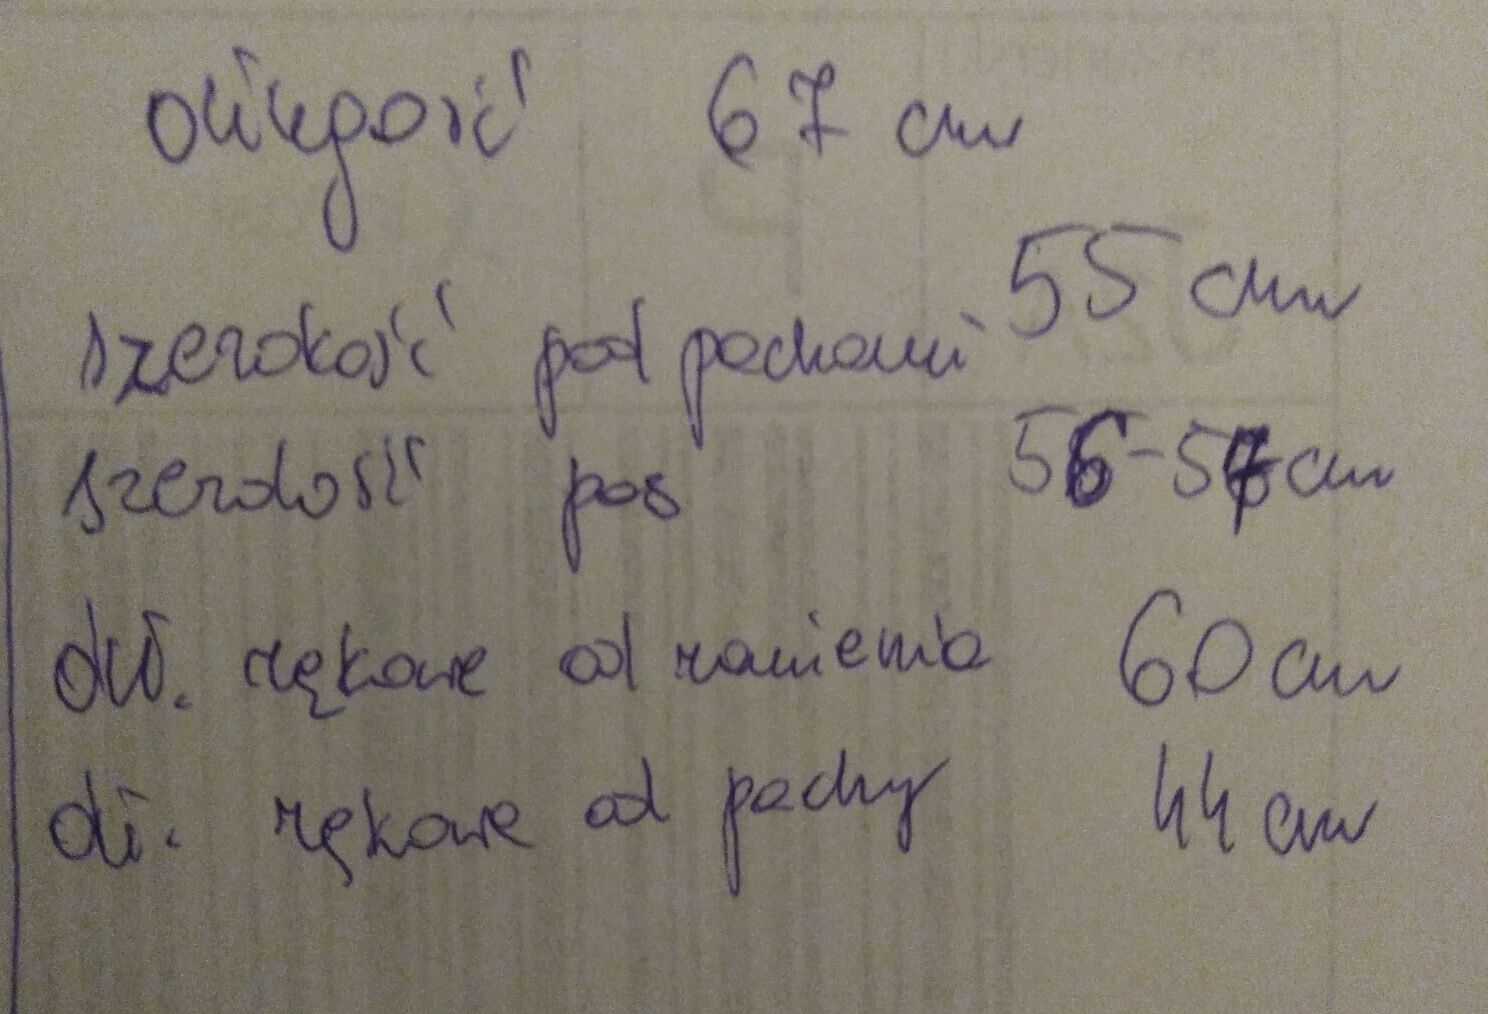 długość 67 cm
szerokość pod pachami 55 cm
szerokość pas 56-57 cm
dł. rękawa od ramienia 60 cm
dł. rękawa od pachy 44 cm